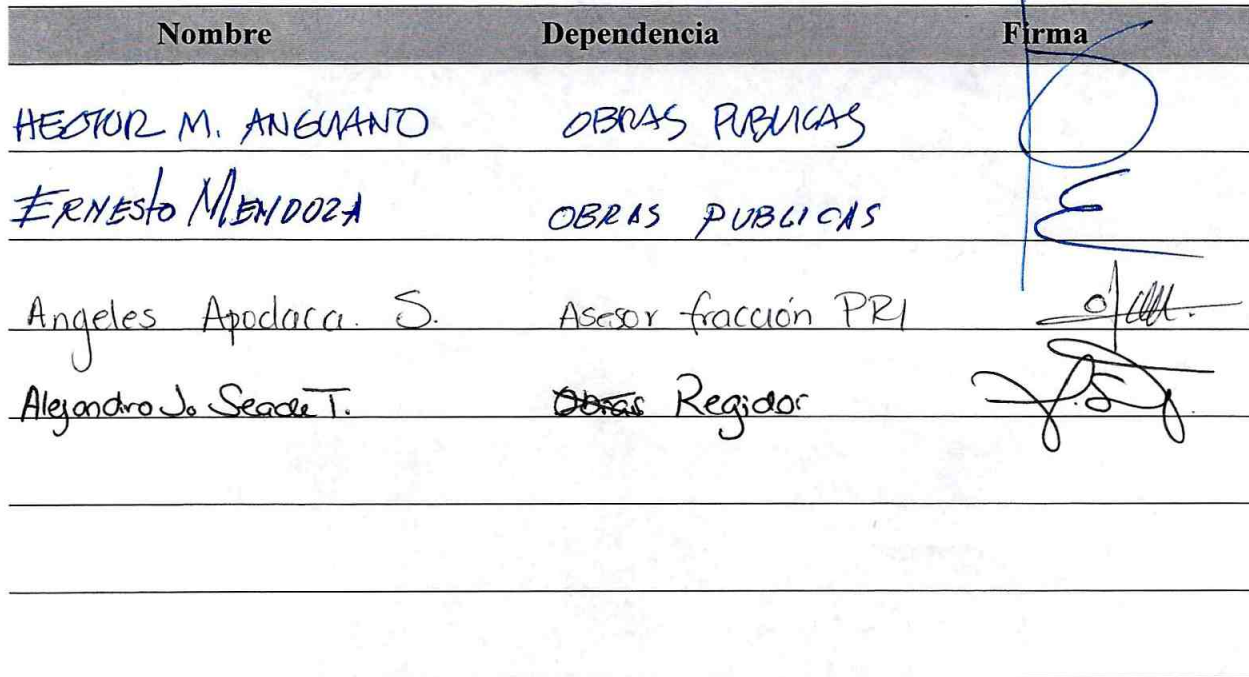 Nombre Dependencia Firma
HECTOR M. ANGUIANO OBRAS PUBLICAS
ERNESTO MENDOZA OBRAS PUBLICAS
Angeles Apodaca. S. Asesor fracción PRI
Alejandro J. Seade T. Obras Regidor